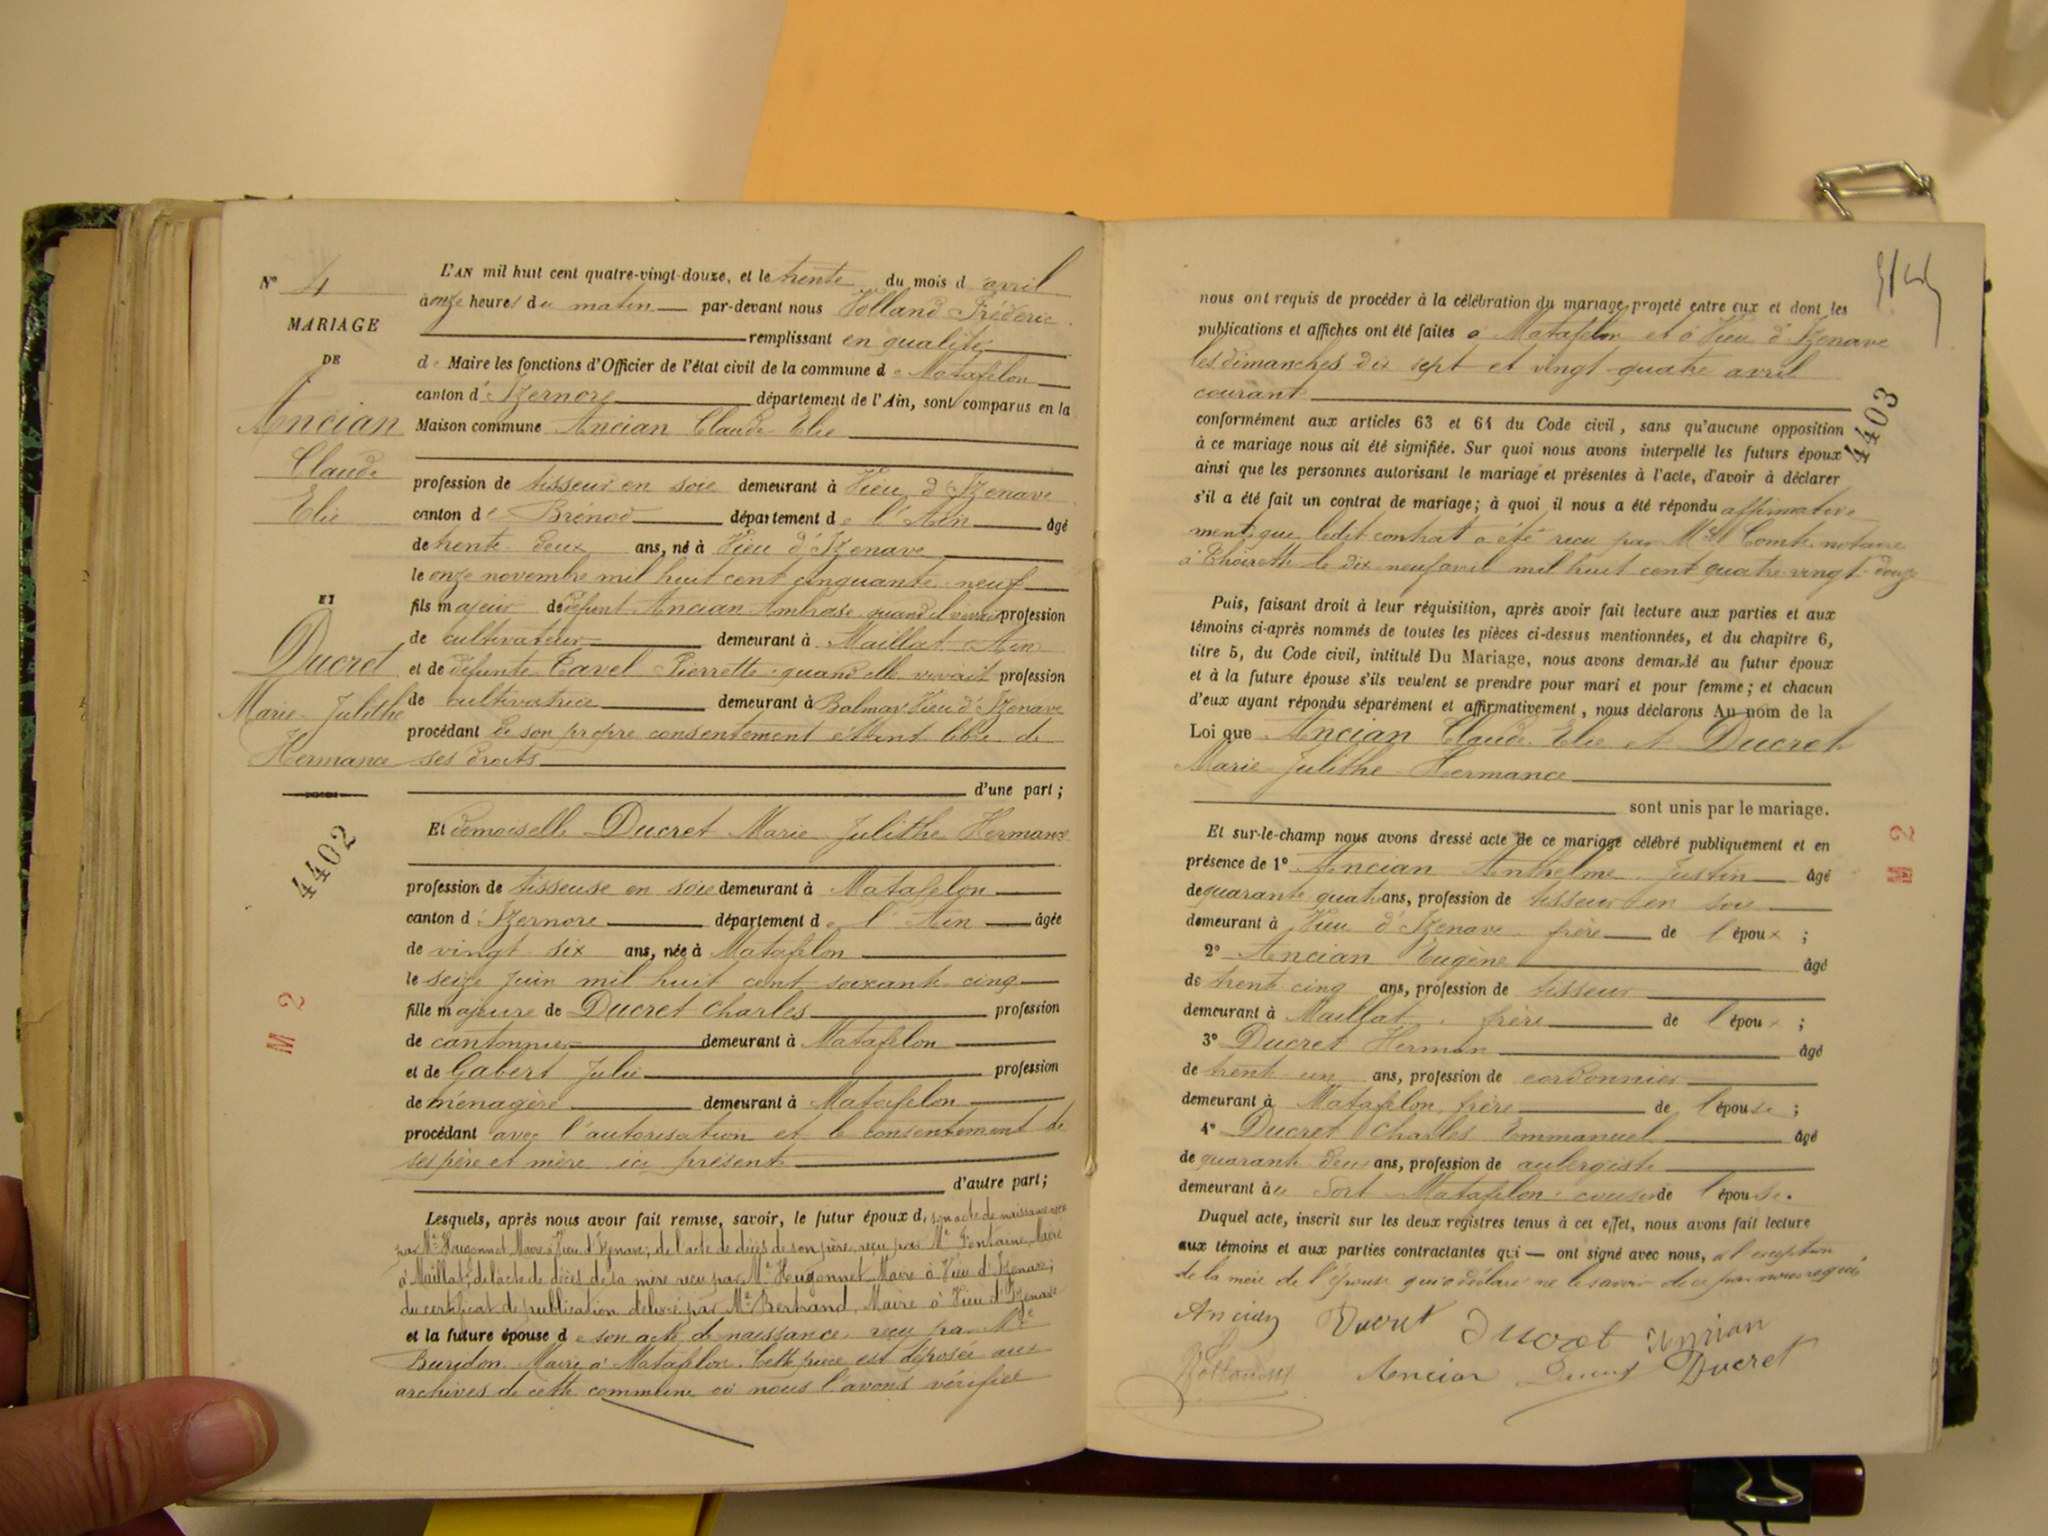 N° 4
MARIAGE
DE
Ancian
Claude
Elie
ET
Ducret
Marie Julithe
Hermance
4402
M 2
L'AN mil huit cent quatre-vingt-douze, et le trente du mois d'avril
à onze heures du matin par-devant nous Volland Fréderic
remplissant en qualité
de Maire les fonctions d'Officier de l'état civil de la commune de Matafelon
canton d'Izernore département de l'Ain, sont comparus en la
Maison commune Ancian Claude Elie
profession de tisseur en soie demeurant à Vieu d'Izenave
canton de Brénod département de l'Ain âgé
de trente deux ans, né à Vieu d'Izenave
le onze novembre mil huit cent cinquante neuf
fils majeur de défunt Ancian Ambroise quand il vivait profession
de cultivateur demeurant à Maillat Ain
et de défunte Tavel Pierrette quand elle vivait profession
de cultivatrice demeurant à Balmay Vieu d'Izenave
procédant de son propre consentement étant libre de
ses droits
d'une part ;
Et demoiselle Ducret Marie Julithe Hermance
profession de tisseuse en soie demeurant à Matafelon
canton d'Izernore département de l'Ain âgée
de vingt six ans, née à Matafelon
le seize juin mil huit cent soixante cinq
fille majeure de Ducret Charles profession
de cantonnier demeurant à Matafelon
et de Gabert Julie profession
de ménagère demeurant à Matafelon
procédant avec l'autorisation et le consentement de
ses père et mère ici présents
d'autre part ;
Lesquels, après nous avoir fait remise, savoir, le futur époux d. son acte de naissance reçu
par Mr Hugonnet Maire à Vieu d'Izenave ; de l'acte de décès de son père, reçu par Mr Fontaine, Maire
à Maillat, de l'acte de décès de sa mère reçu par Mr Hugonnet Maire à Vieu d'Izenave ;
du certificat de publication délivré par Mr Bertrand, Maire à Vieu d'Izenave
et la future épouse de son acte de naissance reçu par Mr
Buridon Maire à Matafelon. Cette pièce est déposée aux
archives de cette commune où nous l'avons vérifiée
nous ont requis de procéder à la célébration du mariage projeté entre eux et dont les
publications et affiches ont été faites à Matafelon et à Vieu d'Izenave
les dimanches dix sept et vingt quatre avril
courant
conformément aux articles 63 et 64 du Code civil, sans qu'aucune opposition
à ce mariage nous ait été signifiée. Sur quoi nous avons interpellé les futurs époux
ainsi que les personnes autorisant le mariage et présentes à l'acte, d'avoir à déclarer
s'il a été fait un contrat de mariage ; à quoi il nous a été répondu affirmative
ment que ledit contrat a été reçu par Me Comte notaire
à Thoirette le dix neuf avril mil huit cent quatre vingt douze
4403
Puis, faisant droit à leur réquisition, après avoir fait lecture aux parties et aux
témoins ci-après nommés de toutes les pièces ci-dessus mentionnées, et du chapitre 6,
titre 5, du Code civil, intitulé Du Mariage, nous avons demandé au futur époux
et à la future épouse s'ils veulent se prendre pour mari et pour femme ; et chacun
d'eux ayant répondu séparément et affirmativement, nous déclarons Au nom de la
Loi que Ancian Claude Elie et Ducret
Marie Julithe Hermance
sont unis par le mariage.
Et sur-le-champ nous avons dressé acte de ce mariage célébré publiquement et en
présence de 1° Ancian Anthelme Justin âgé
de quarante quatre ans, profession de tisseur en soie
demeurant à Vieu d'Izenave frère de l'époux ;
2° Ancian Eugène âgé
de trente cinq ans, profession de tisseur
demeurant à Maillat, frère de l'époux ;
3° Ducret Herman âgé
de trente un ans, profession de cordonnier
demeurant à Matafelon, frère de l'épouse ;
4° Ducret Charles Emmanuel âgé
de quarante deux ans, profession de aubergiste
demeurant à Matafelon cousin de l'épouse.
Duquel acte, inscrit sur les deux registres tenus à cet effet, nous avons fait lecture
aux témoins et aux parties contractantes qui — ont signé avec nous, à l'exception
de la mère de l'épouse qui a déclaré ne le savoir de ce par nous requis
M 2
Ancian Ducret Ducret Ancian
Ancian Ducret Ducret